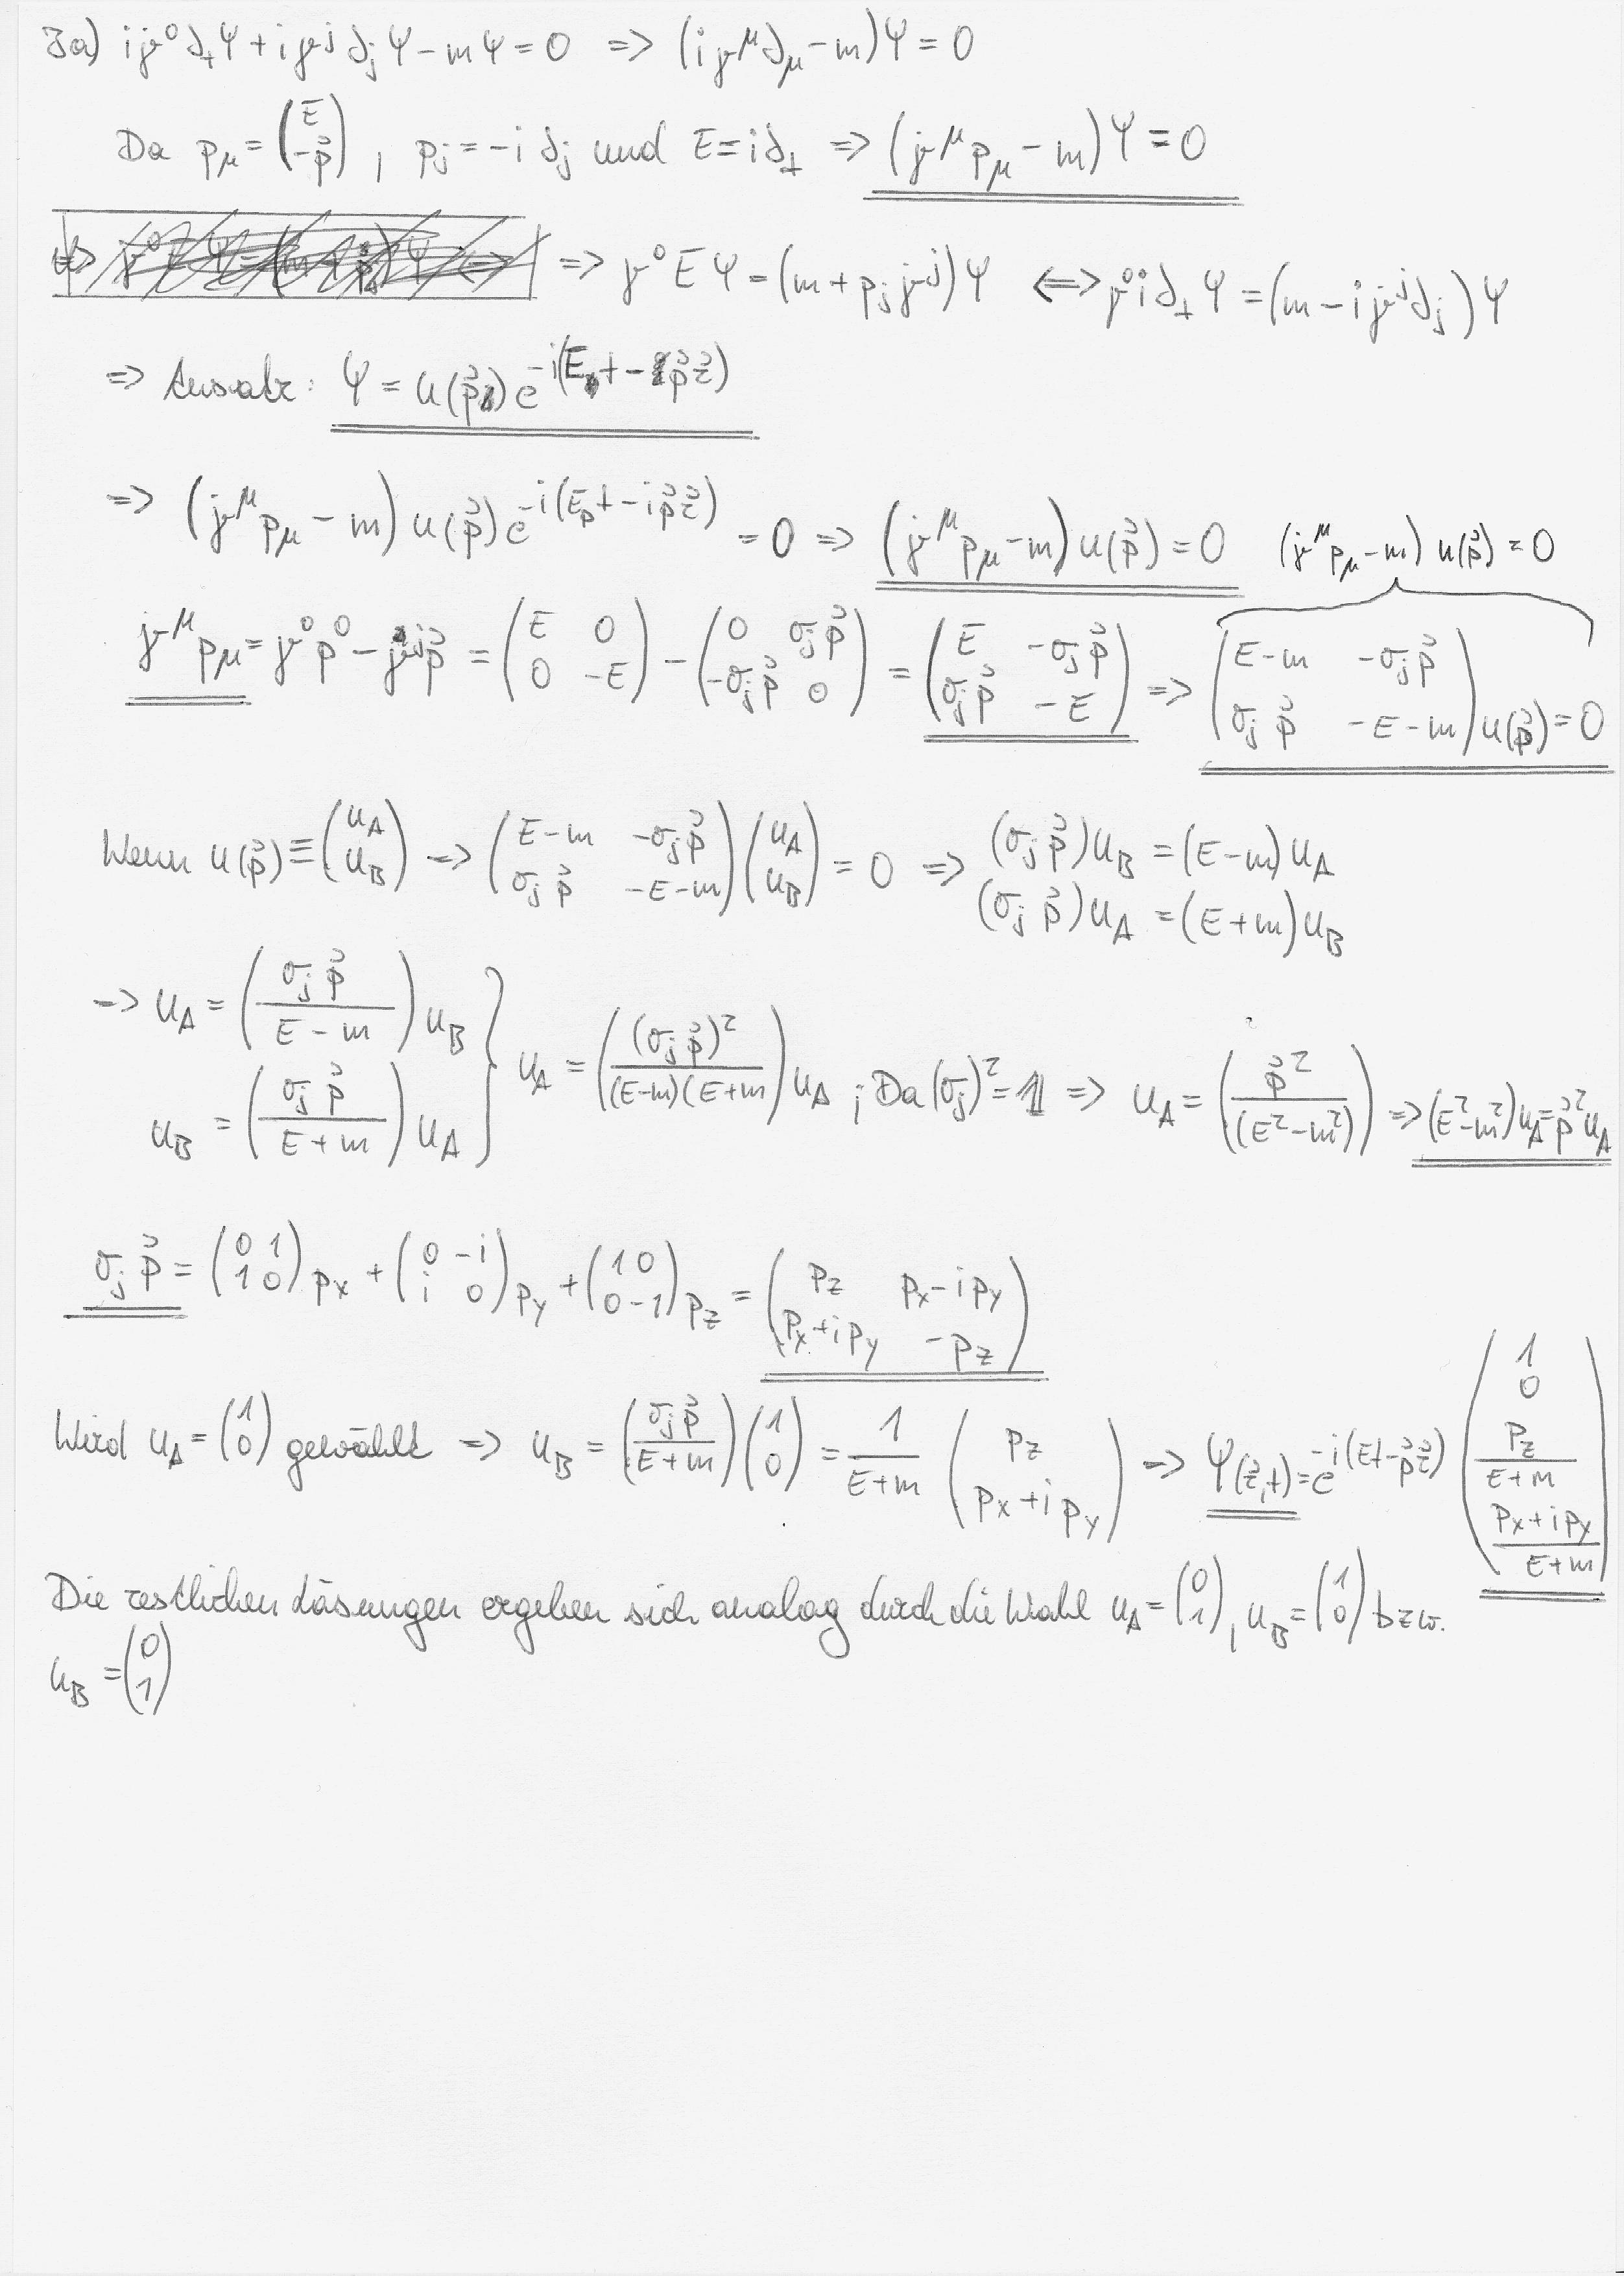 3a) iγ⁰∂ₜΨ + iγʲ∂ⱼΨ − mΨ = 0 => (iγ^μ∂_μ − m)Ψ = 0
Da p_μ = (E / −p⃗), pⱼ = −i∂ⱼ und E = i∂ₜ => (γ^μ p_μ − m)Ψ = 0
=> γ⁰EΨ = (m + pⱼγʲ)Ψ <=> γ⁰i∂ₜΨ = (m − iγʲ∂ⱼ)Ψ
=> Ansatz: Ψ = u(p⃗) e^{−i(Et − p⃗r⃗)}
=> (γ^μ p_μ − m) u(p⃗) e^{−i(E_p t − ip⃗r⃗)} = 0 => (γ^μ p_μ − m) u(p⃗) = 0 (γ^μ p_μ − m) u(p⃗) = 0
γ^μ p_μ = γ⁰p⁰ − γʲp⃗ = (E 0 / 0 −E) − (0 σⱼp⃗ / −σⱼp⃗ 0) = (E −σⱼp⃗ / σⱼp⃗ −E) => (E−m −σⱼp⃗ / σⱼp⃗ −E−m) u(p⃗) = 0
Wenn u(p⃗) ≡ (u_A / u_B) => (E−m −σⱼp⃗ / σⱼp⃗ −E−m) (u_A / u_B) = 0 => (σⱼp⃗)u_B = (E−m)u_A
(σⱼp⃗)u_A = (E+m)u_B
=> u_A = (σⱼp⃗ / E−m) u_B
u_B = (σⱼp⃗ / E+m) u_A } u_A = ((σⱼp⃗)² / (E−m)(E+m)) u_A ; Da (σⱼ)² = 𝟙 => u_A = (p⃗² / (E²−m²)) => (E²−m²)u_A = p⃗²u_A
σⱼp⃗ = (0 1 / 1 0) p_x + (0 −i / i 0) p_y + (1 0 / 0 −1) p_z = (p_z p_x−ip_y / p_x+ip_y −p_z)
Wird u_A = (1 / 0) gewählt => u_B = (σⱼp⃗ / E+m) (1 / 0) = 1/(E+m) (p_z / p_x+ip_y) => Ψ(r⃗,t) = e^{−i(Et−p⃗r⃗)} (1 / 0 / p_z/(E+m) / (p_x+ip_y)/(E+m))
Die restlichen Lösungen ergeben sich analog durch die Wahl u_A = (0 / 1), u_B = (1 / 0) bzw.
u_B = (0 / 1)